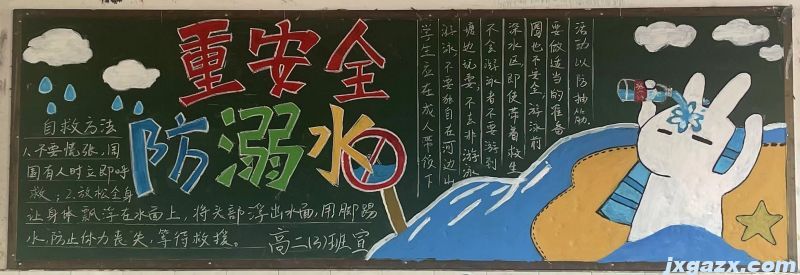 重安全
防溺水
自救方法
1.不要慌张,周
围有人时立即呼
救;2.放松全身
让身体飘浮在水面上,将头部浮出水面,用脚踢
水,防止体力丧失,等待救援。
高二(3)班宣
学生应在成人带领下
游泳,不要独自在河边山
塘边玩耍,不去非游泳
不会游泳者不要游到
深水区,即使带着救生
圈也不安全,游泳前
要做适当的准备
活动以防抽筋.
jxgazx.com